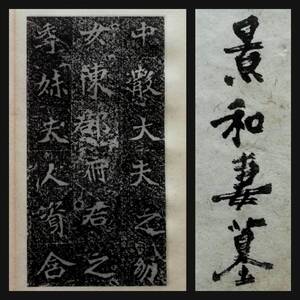 中散大夫之幼
女陳郡府君之
季妹夫人資含
景和妻墓